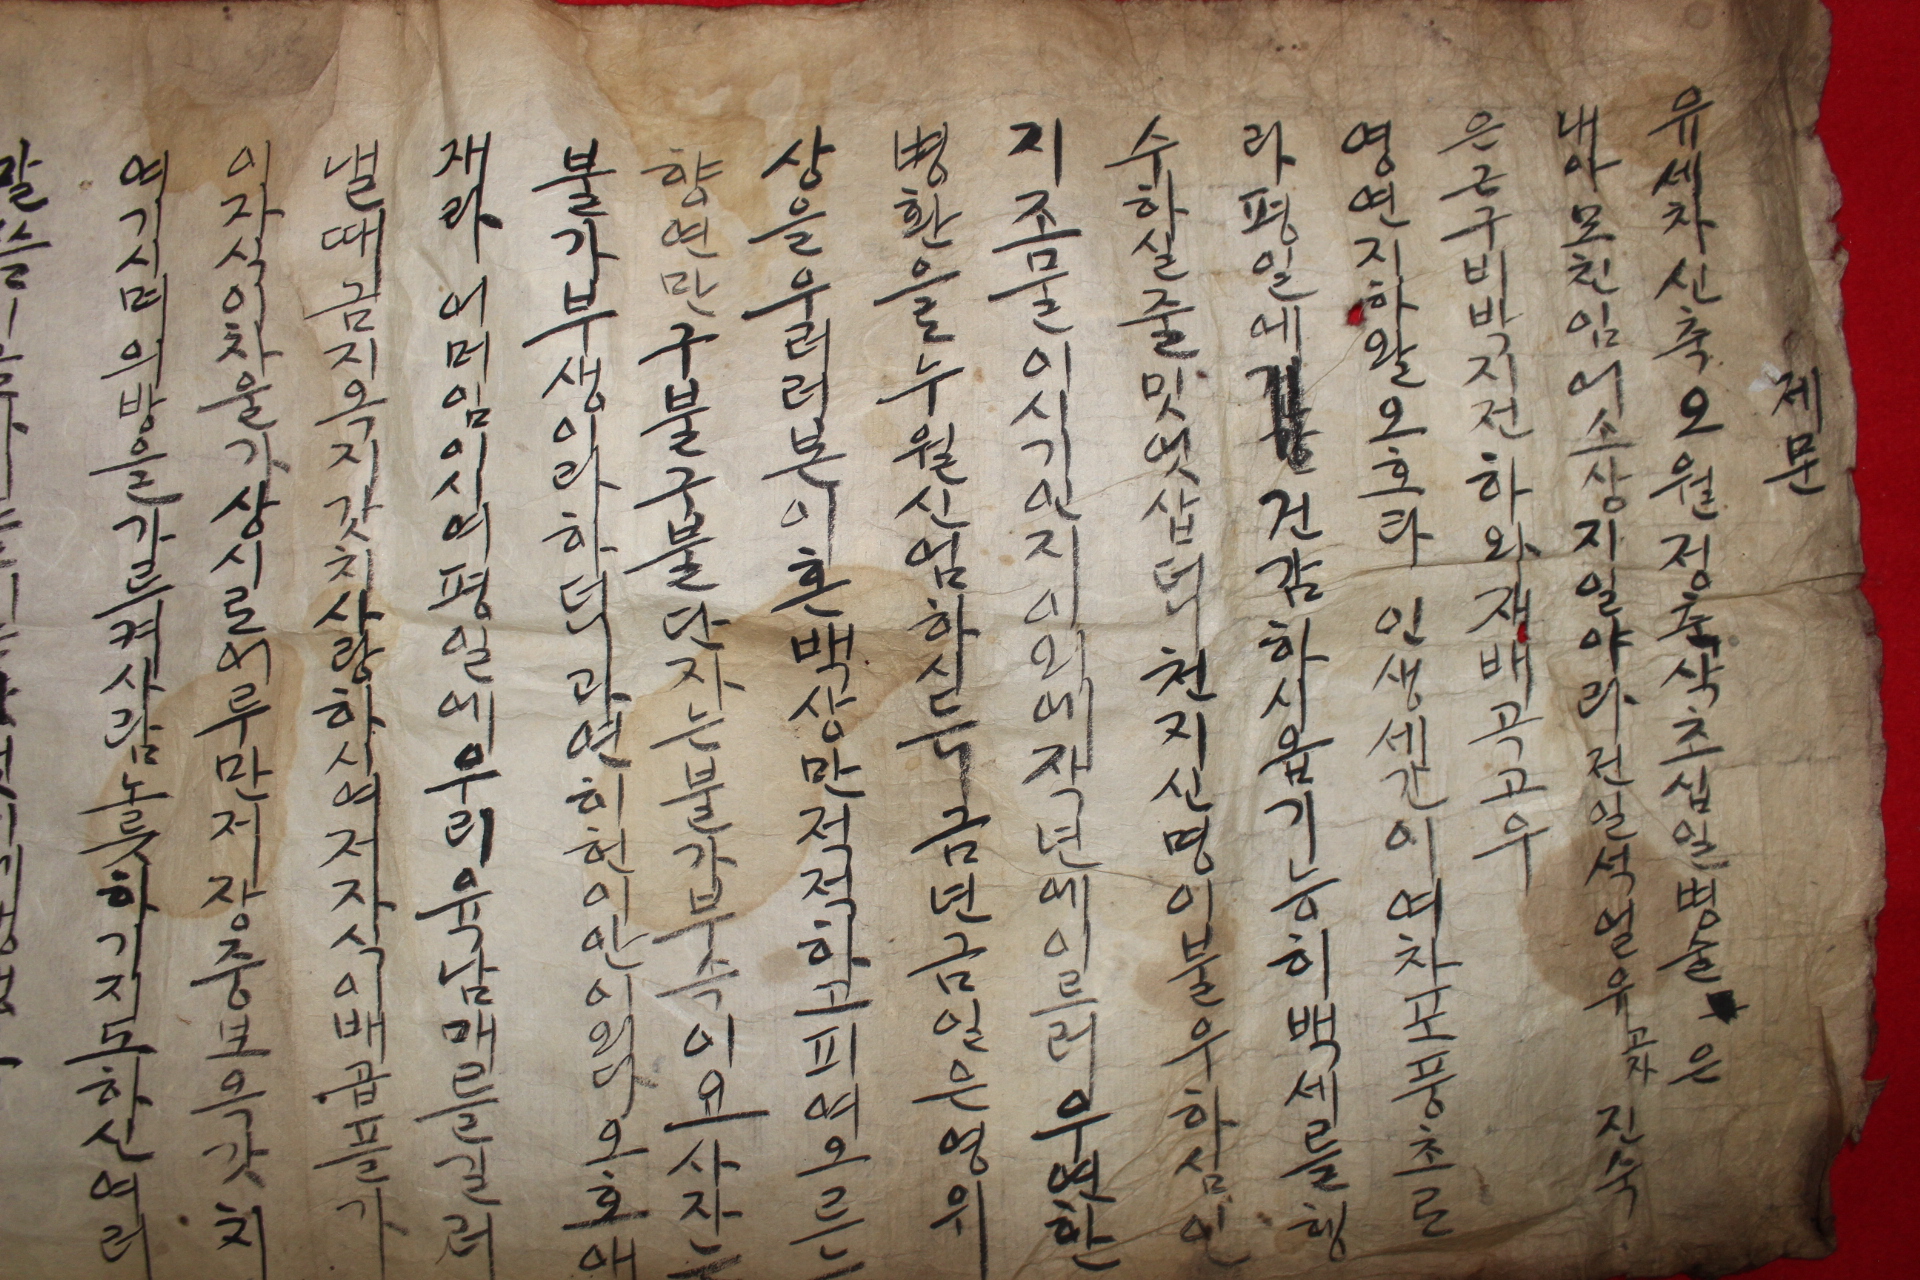 제문
유세차신축오월정축삭초십일병술은
내아모친임어소상지일야라전일석얼유고자진숙
은근구비박지전하와재배곡고우
영연지하왈오호라 인생세간이여차모풍초로
라평일에 건감하시옵기능히백세를행
수하실줄밋엇삽더천지신명이불우하심인
지조물이시기인지이외에작년에이르러우연한
병환을누월신엄하시드금년금일은영위
상을우러러본이혼백상만적적하고피여오르는
향연만구불구불단자는불가부족이요사자는
불가부생이라하더라연히헌이안이외다오호애
재라 어머임이시여평일에우리육남매를길러
낼때금지옥지갓치사랑하시여저자식이배곱플가
이자식이차울가상시로어루만저장중보옥갓치
여기시며의방을가르켜사람노릇하기지도하신여러
말슴